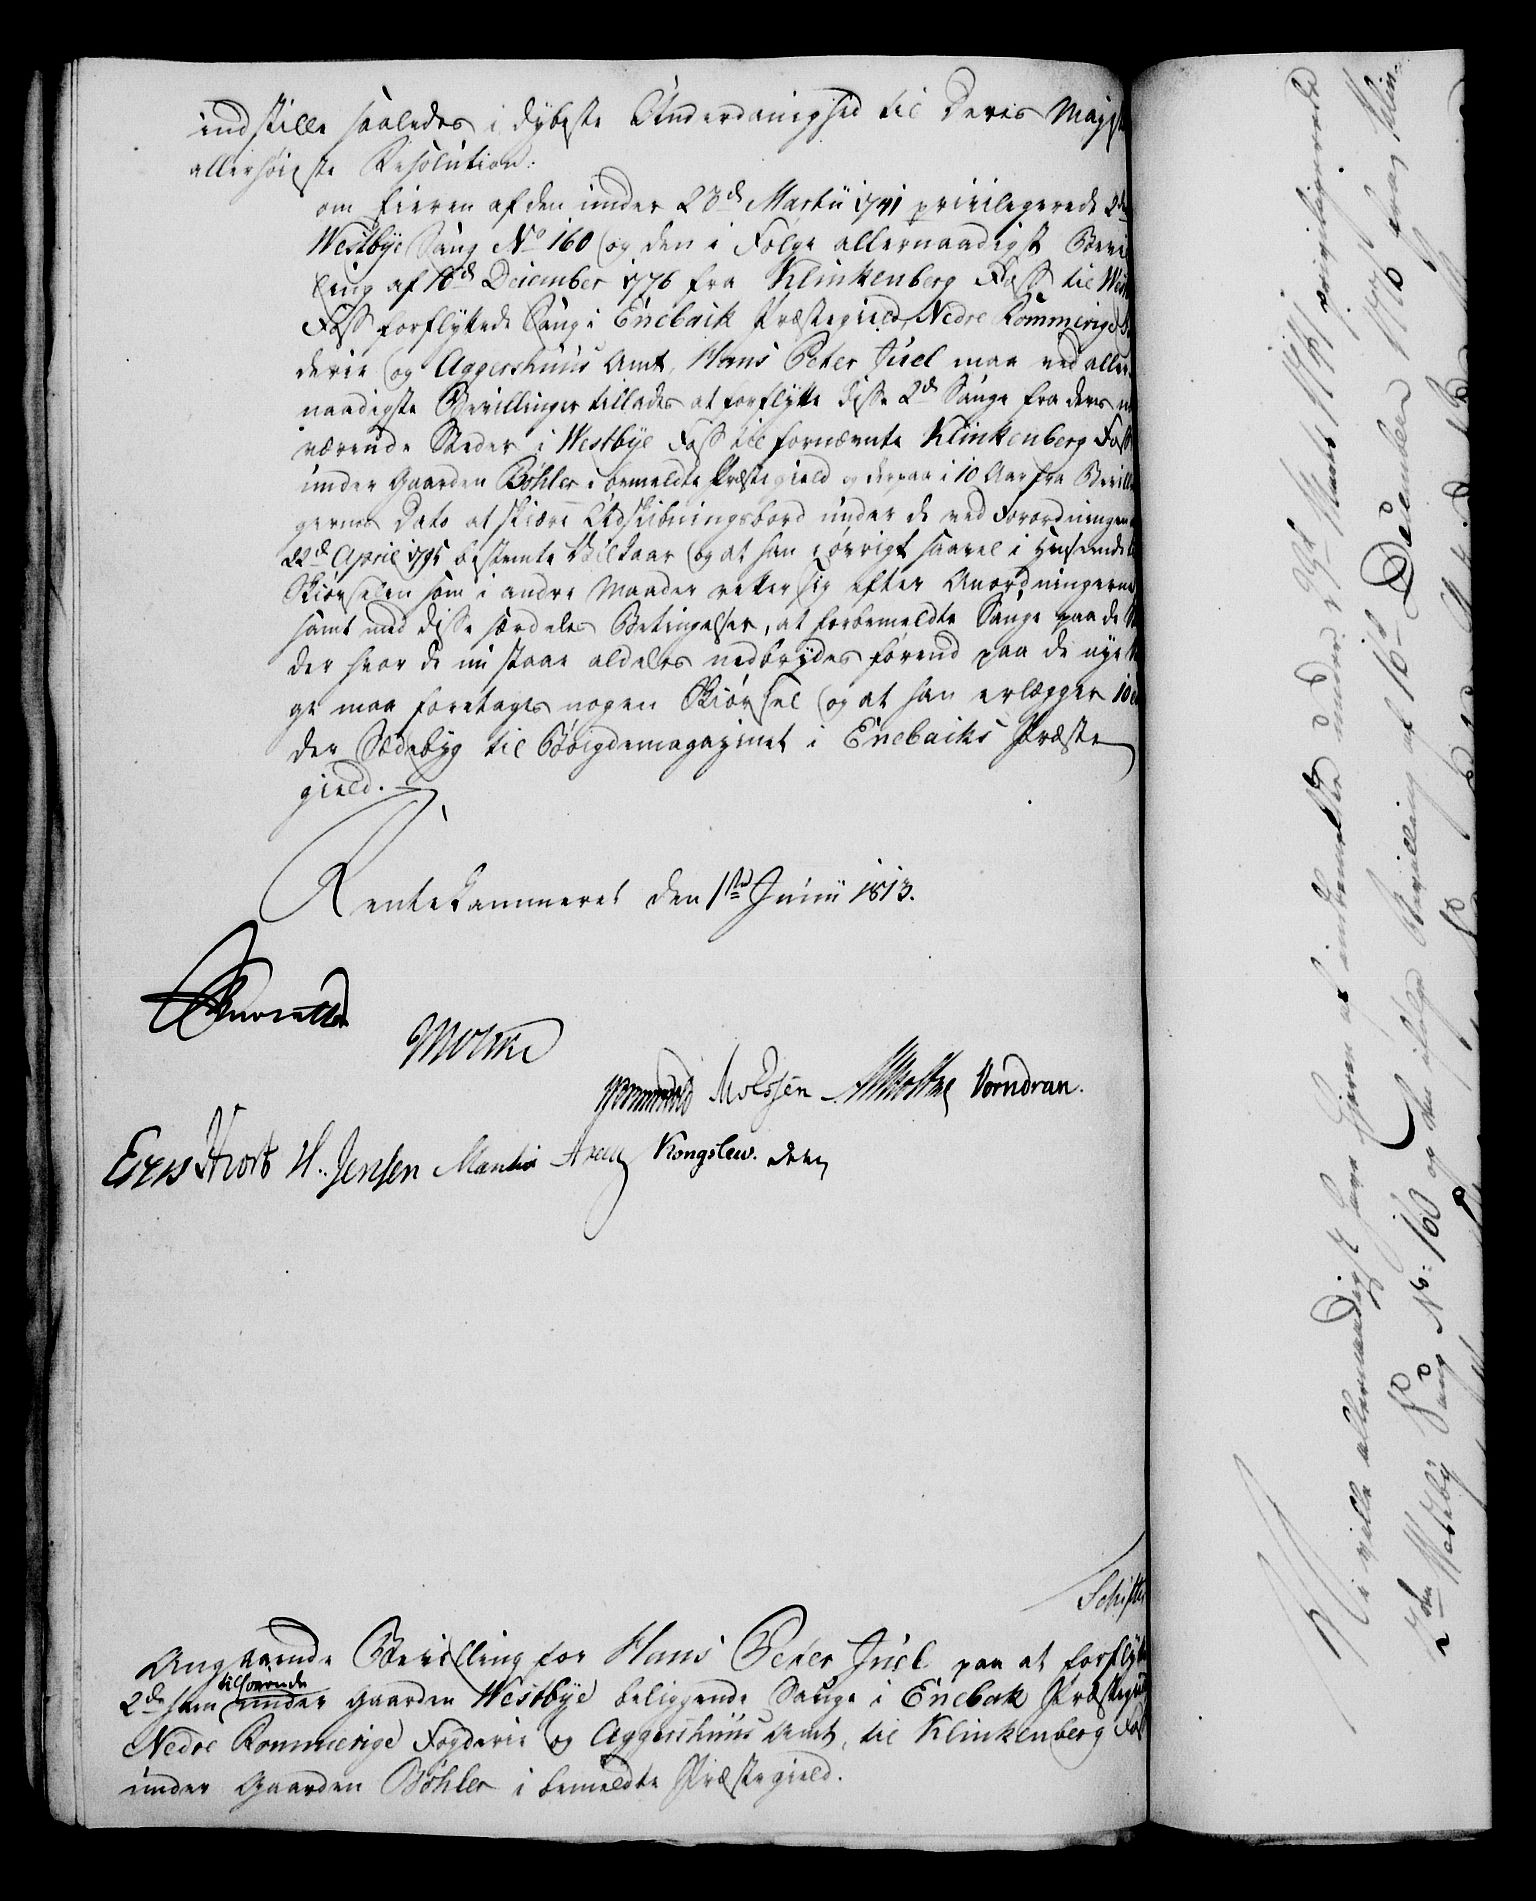 indstille saaledes i dybeste Underdanighed til Deres Majest
allerhøieste Resolution:
om Eieren af den under 23d Martii 1741 privilegerede 2den
Westbye Saug No 160 og den i Følge allernaadigst Bevil
ling af 16d December 1776 fra Klinkenberg Foss til West
Foss forflyttede Saug i Enebak Præstegield, Nedre Rommerige
derie og Aggershuus Amt, Hans Peter Juel maa ved aller-
naadigste Bevillinger tillades at forflytte disse 2de Sauge fra deres nu
værende Steder i Westbye Foss til fornævnte Klinkenberg Foss
under Gaarden Bøhler i bemeldte Præstegield og derpaa i 10 Aar fra Bevillin
gernes Dato at skiære Udskibningsbord under de ved Forordningen
22de April 1795 bestemte Vilkaar og at han iøvrigt saavel i Henseende
Skiørselen som i andre Maader retter sig efter Anordningerne
samt med disse særdeles Betingelser, at forbemeldte Sauge paa de
der hvor de nu staae aldeles nedbrydes førend paa de nye
ge maa foretages nogen Skiørsel og at han erlægger 10
der Sædebyg til Bøigdemagazinet i Enebaks Præste
gield.
Rentekammeret den 1ste Junii 1813.
Moltke
Vorndran.
Hiort H. Jensen Kongslew.
Schifte
Angaaende Bevilling for Hans Peter Juel paa at forflytte
tilhørende
2de ham under Gaarden Westbye beliggende Sauge i Enebak Præstegield
Nedre Rommerige Fogderie og Aggershuus Amt, til Klinkenberg Foss
under Gaarden Bøhler i bemeldte Præstegield.
Vi ville allernaadigst have Eieren af indbemeldte under 23de Martii 1741 privilegerede
2den Westby Saug No: 160 og den ifølge Bevilling af 16de December 1776 fra Klin-